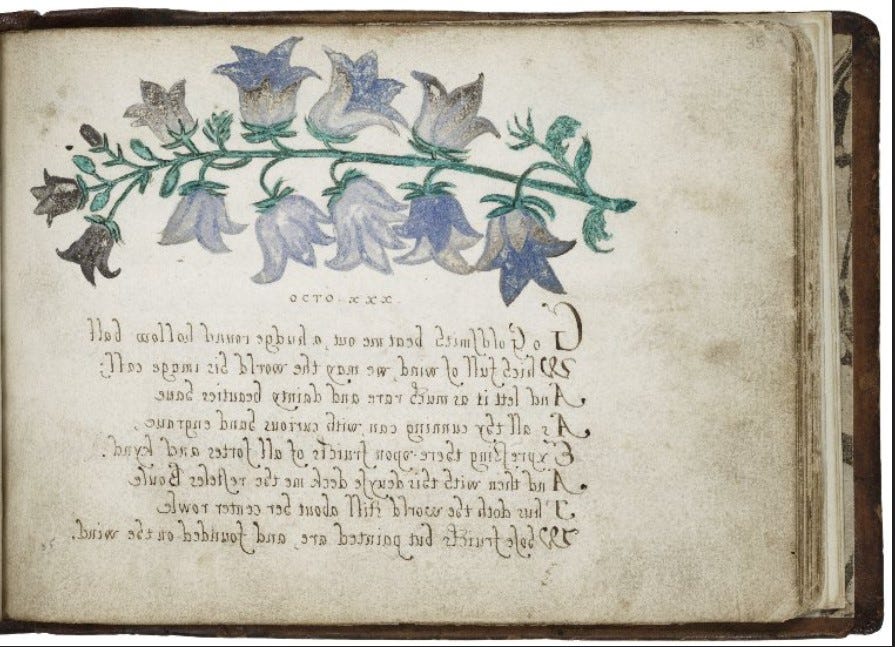 35
OCTO. XXX.
Go Goldſmith beat me out, a hudge round hollow ball
Which full of wind, we may the world his image call;
And lett it as much rare and dainty beauties haue
As all thy cunning can with curious hand engraue,
Expreſſing there-upon fruicts of all ſortes and kynd.
And then with this deuyſe deck me the reſtles Boule
Thus doth the world ſtill about her center rowle
Whoſe fruicts but painted are, and founded on the wind.